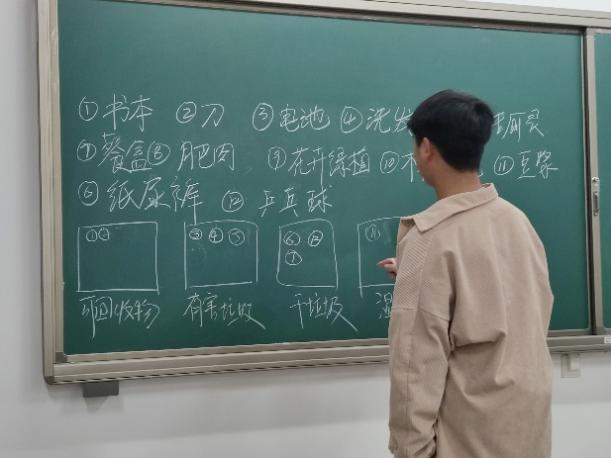 ①书本 ②刀 ③电池 ④洗发
⑦餐盒 ⑧肥肉 ⑨花卉绿植 ⑩ ⑪豆浆
⑥纸尿裤 ⑫乒乓球
①② ③④⑤ ⑥⑫ ⑪
⑦
可回收物 有害垃圾 干垃圾 湿